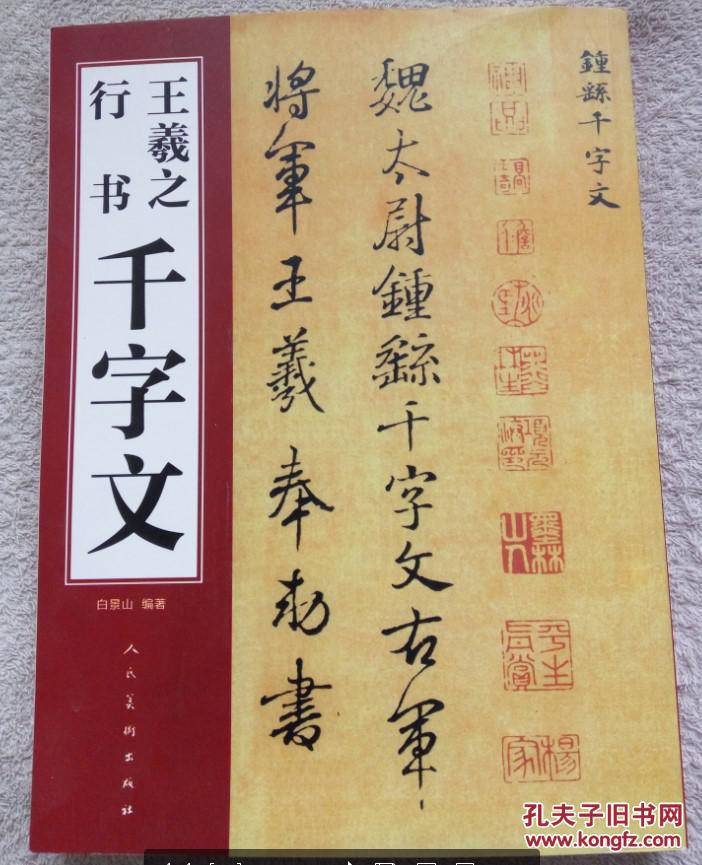 鍾繇千字文
魏太尉鍾繇千字文右軍
將軍王羲奉勅書
王羲之
行书
千字文
白景山 编著
人民美術出版社
孔夫子旧书网
kongfz.com